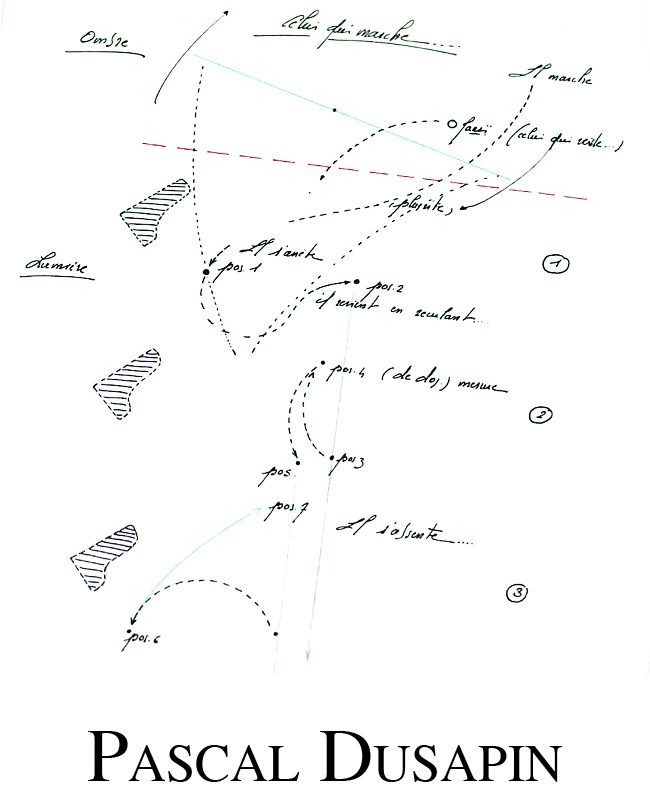 Ombre
Celui qui marche.....
Il marche
(celui qui reste...)
Lumière
Il s'arrête
pos. 1
1
pos. 2
il revient en reculant....
pos. 4 (de dos)
2
pos.
pos 3
pos. 7
Il s'assente....
3
pos. 6
PASCAL DUSAPIN